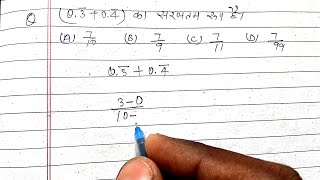 Q (0.3̅ + 0.4̅) का सरलतम रूप है।
(A) 7/10 (B) 7/9 (C) 7/11 (D) 7/99
0.3̅ + 0.4̅
3-0
10-